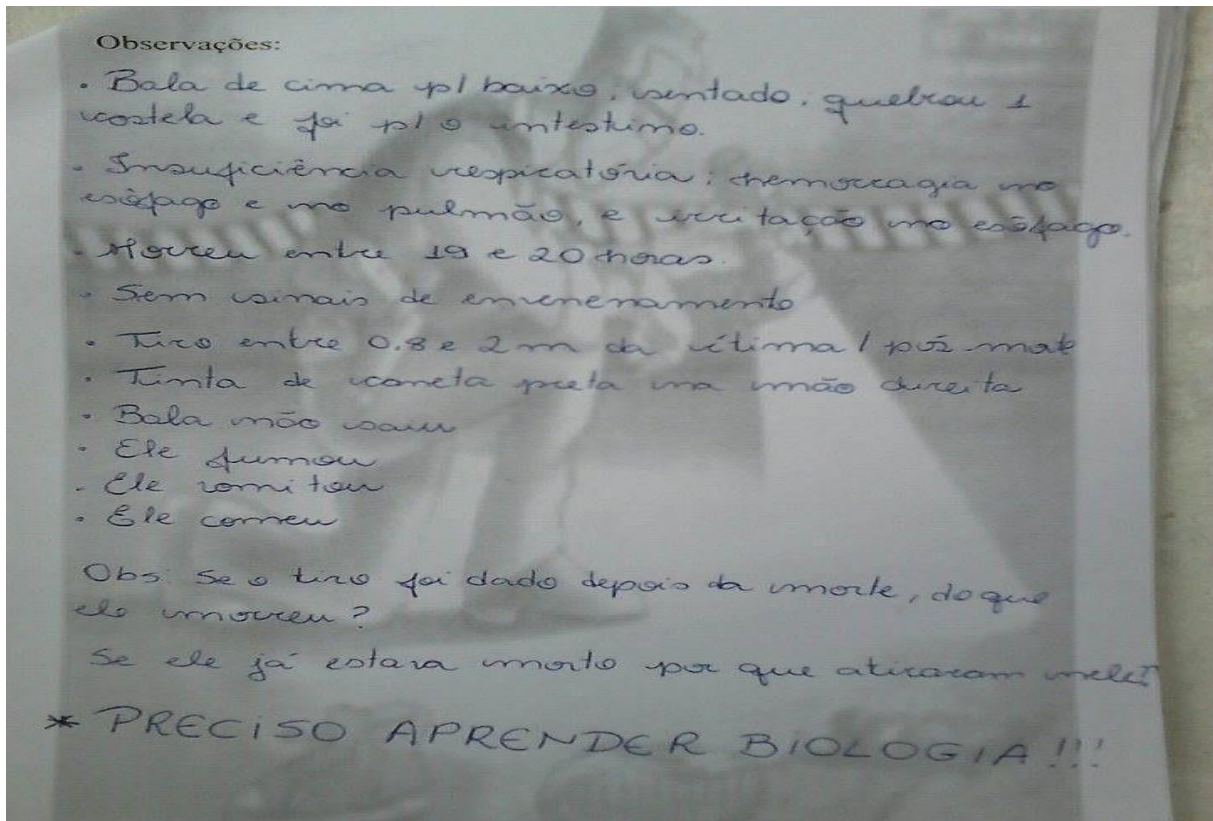 Observações:
. Bala de cima p/ baixo; sentado; quebrou 1
costela e foi p/ o intestino.
- Insuficiência respiratória; hemorragia no
esôfago e no pulmão, e irritação no esôfago.
- Morreu entre 19 e 20 horas.
- Sem sinais de envenenamento
. Tiro entre 0.8 e 2 m da vítima /
. Tinta de caneta preta na mão direita
. Bala não saiu
- Ele fumou
- Ele vomitou
. Ele comeu
Obs: Se o tiro foi dado depois da morte, do que
ele morreu?
Se ele já estava morto por que atiraram nele?
* PRECISO APRENDER BIOLOGIA!!!